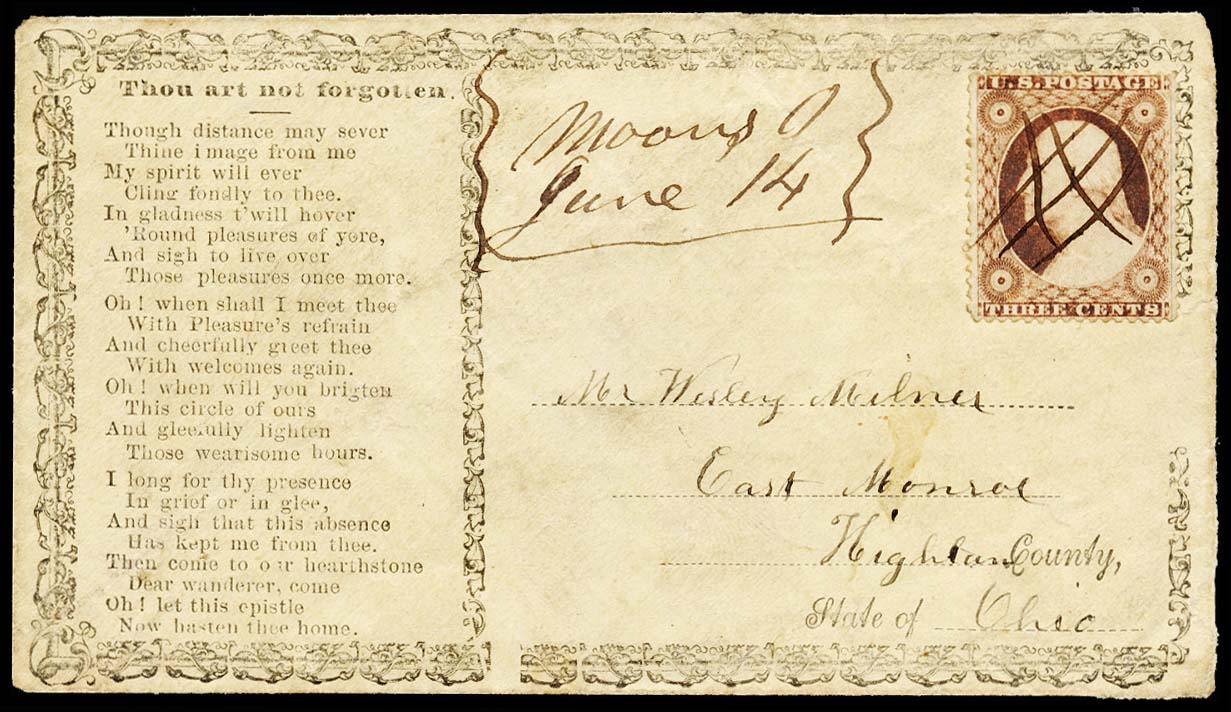 Thou art not forgotten.
Though distance may sever
Thine image from me
My spirit will ever
Cling fondly to thee.
In gladness t'will hover
'Round pleasures of yore,
And sigh to live over
Those pleasures once more.
Oh! when shall I meet thee
With Pleasure's refrain
And cheerfully greet thee
With welcomes again.
Oh! when will you brigten
This circle of ours
And gleefully lighten
Those wearisome hours.
I long for thy presence
In grief or in glee,
And sigh that this absence
Has kept me from thee.
Then come to our hearthstone
Dear wanderer, come
Oh! let this epistle
Now hasten thee home.
Moons O
June 14
U.S. POSTAGE
THREE CENTS
Mr Wesley Milner
East Monroe
Highlan County,
State of Ohio